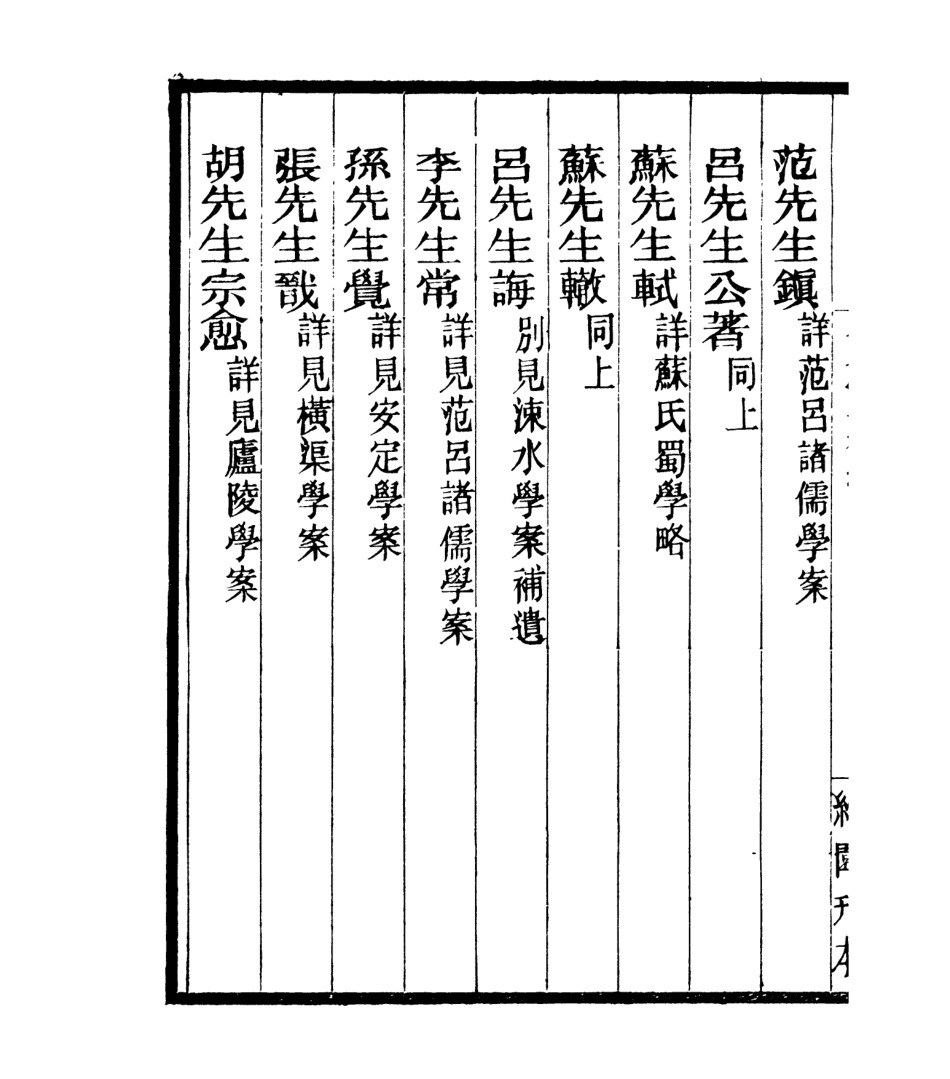 范先生鎮詳范呂諸儒學案
呂先生公著同上
蘇先生軾詳蘇氏蜀學略
蘇先生轍同上
呂先生誨別見涑水學案補遺
李先生常詳見范呂諸儒學案
孫先生覺詳見安定學案
張先生戩詳見橫渠學案
胡先生宗愈詳見廬陵學案